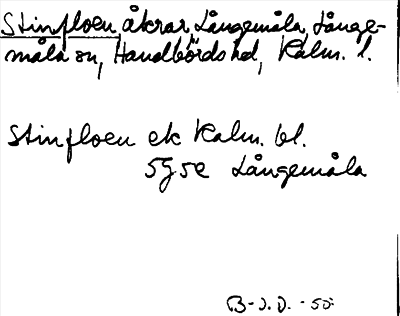 Stinfloen åkrar, Långemåla, Långe-
måla sn, Handbörds hd, Kalm. l.
Stinfloen ek Kalm. bl.
5g5e Långemåla
B-J.D. -50